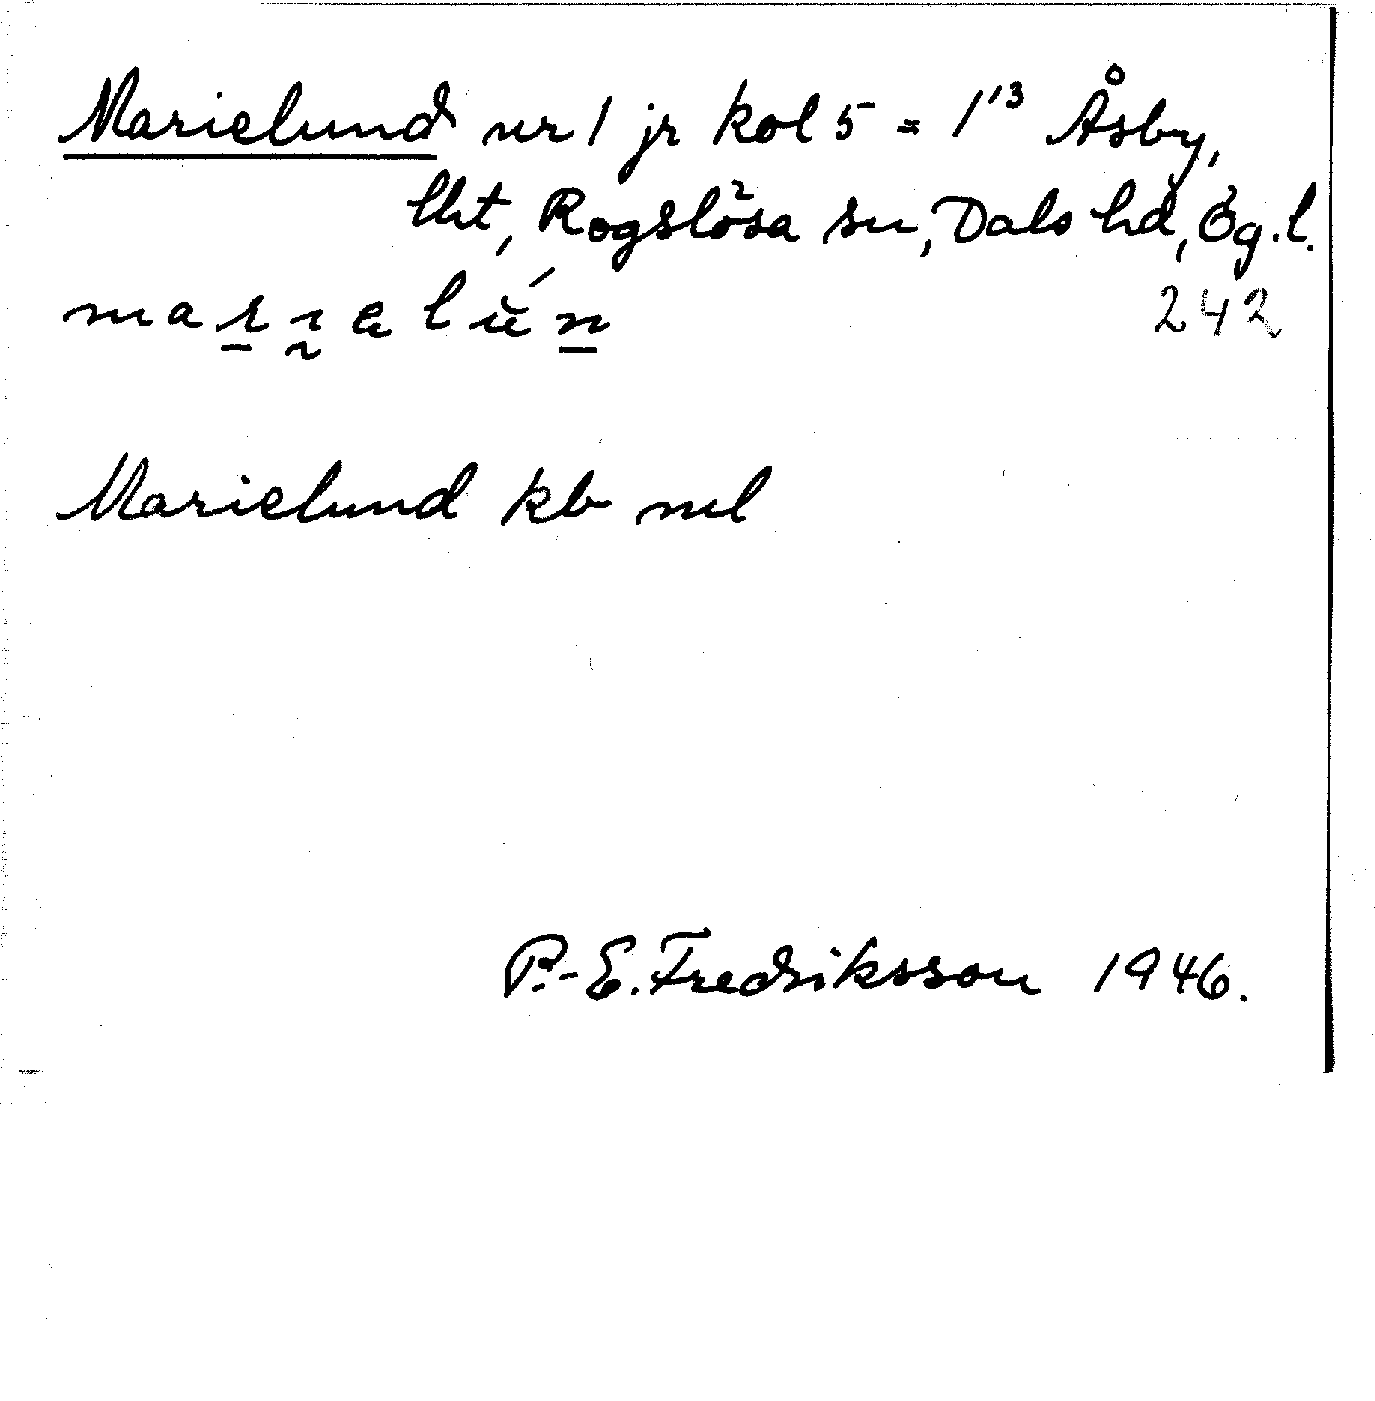 Marielund nr 1 jr kol 5 = 1¹³ Åsby,
lht, Rogslösa sn, Dals hd, Ög. l.
242
Marielund kb nul
P.-E. Fredriksson 1946.